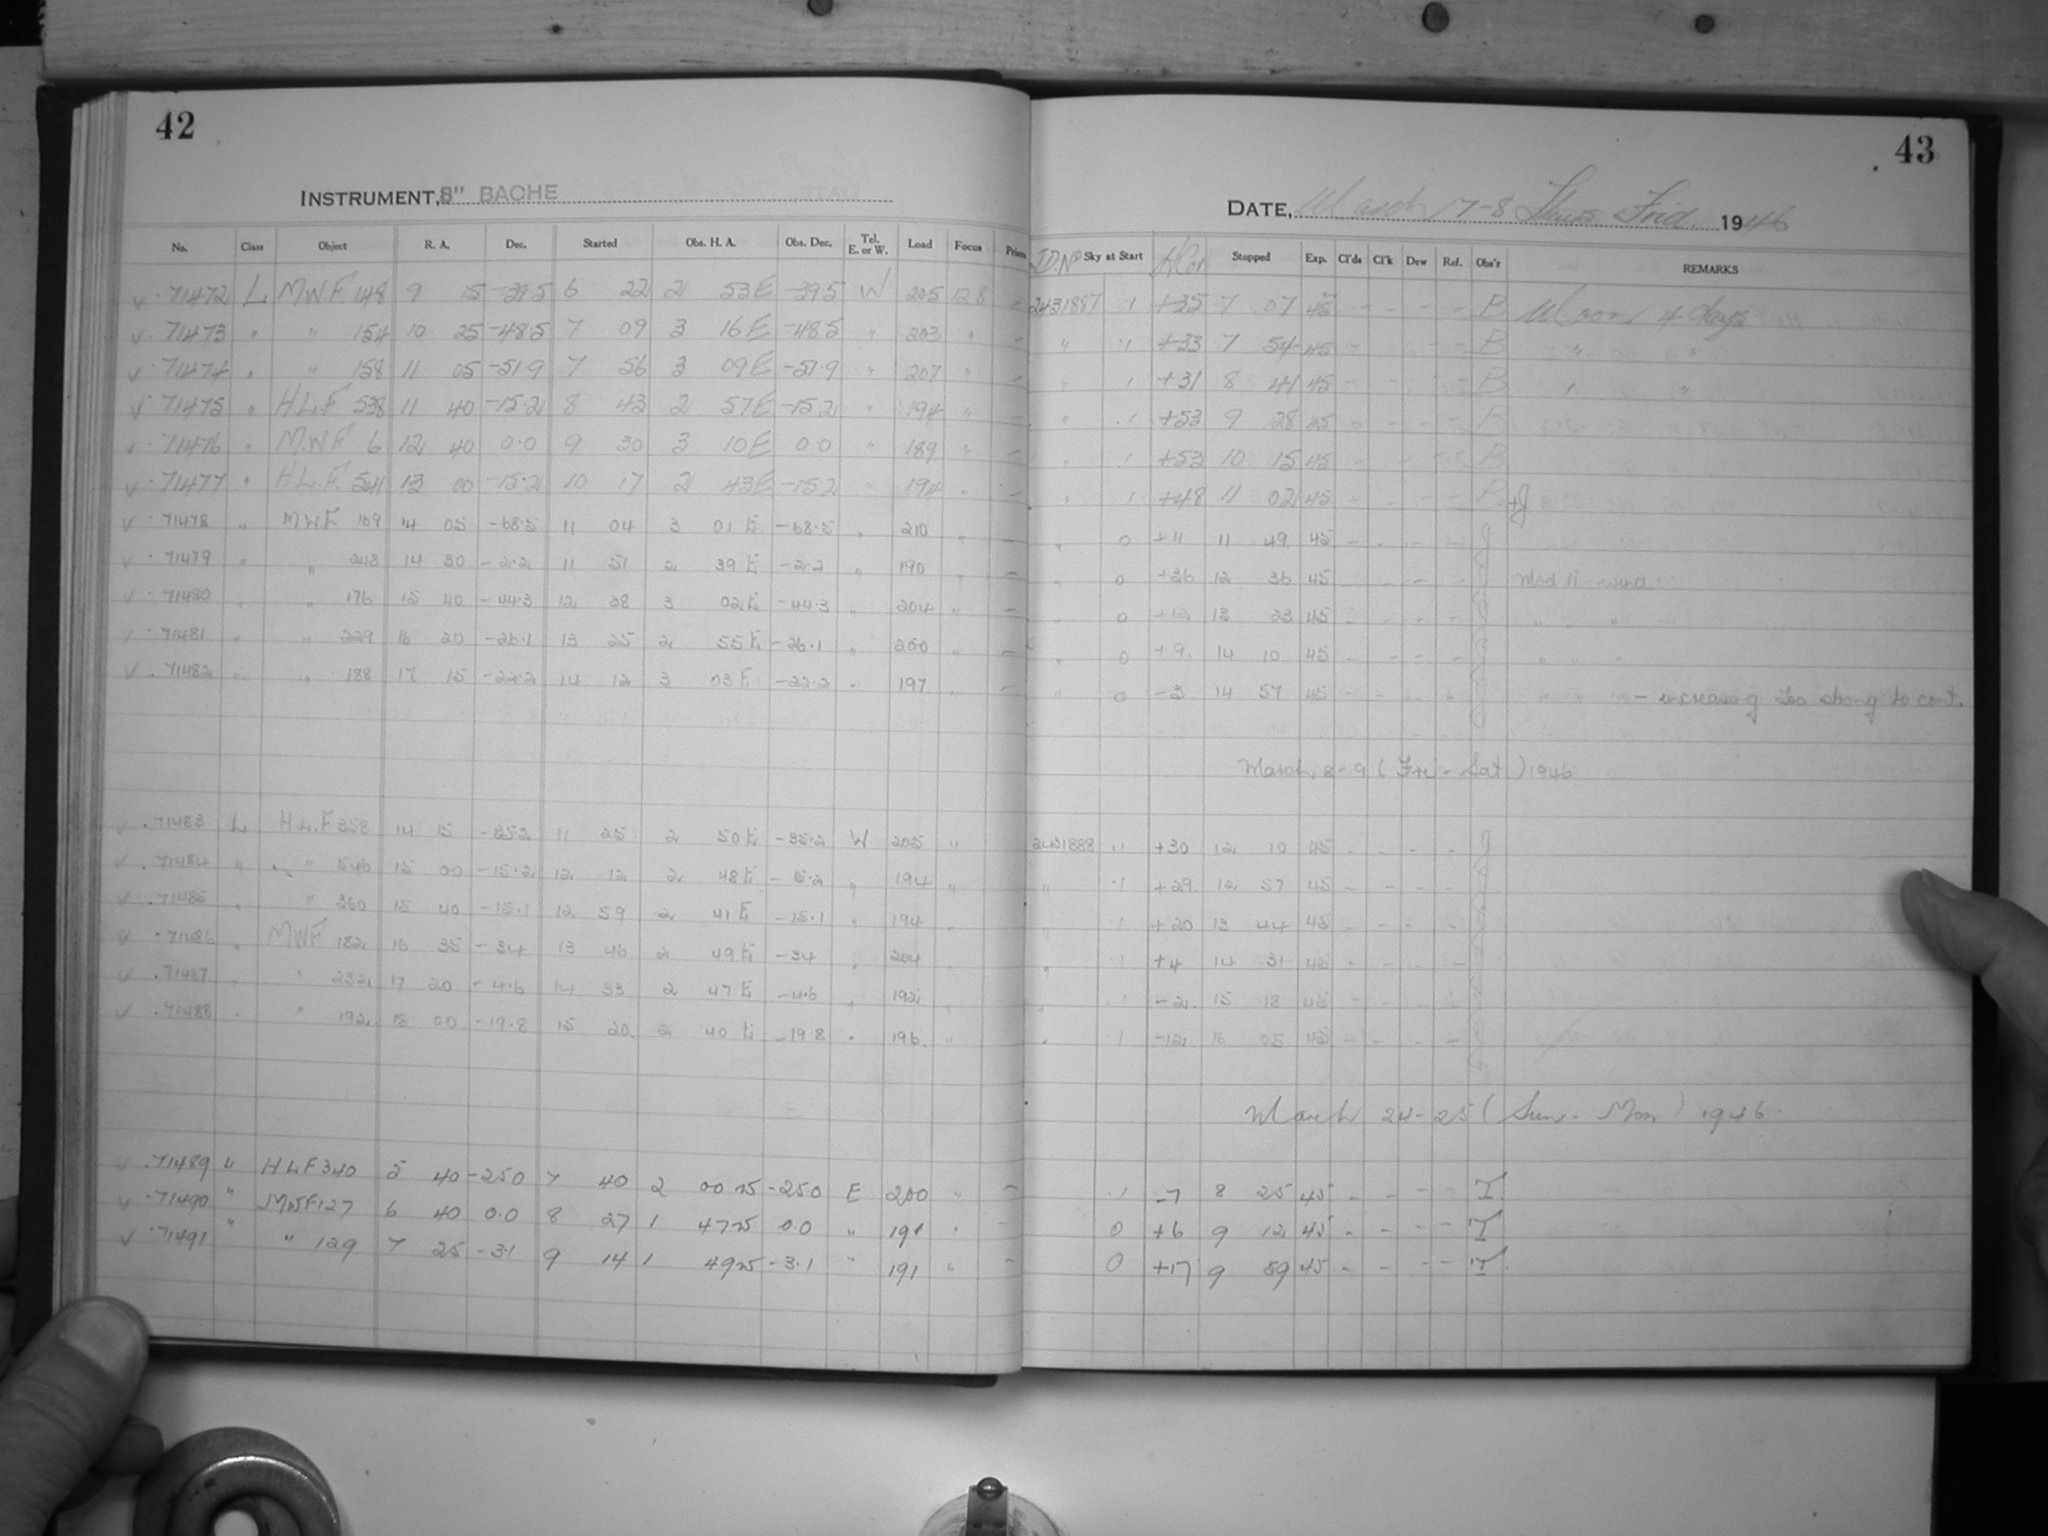 42
INSTRUMENT, 8" BACHE
No. Class Object R. A. Dec. Started Obs. H. A. Obs. Dec. Tel. E. or W. Load Focus
71472 L M.W.F. 148 9 15 -39.5 6 22 2 53E -39.5 W 205 12.8 -
71473 " " 154 10 25 -48.5 7 09 3 16E -48.5 " 203 " -
71474 " " 158 11 05 -51.9 7 56 3 09E -51.9 " 207 " -
71475 " H.L.F. 538 11 40 -15.2 8 43 2 57E -15.2 " 194 " -
71476 " M.W.F. 6 12 40 0.0 9 30 3 10E 0.0 " 189 " -
71477 " H.L.F. 541 13 00 -15.2 10 17 2 43E -15.2 " 194 " -
71478 " MWF 169 14 05 -68.5 11 04 3 01 E -68.5 " 210 " -
71479 " " 218 14 30 -2.2 11 51 2 39 E -2.2 " 190 " -
71480 " " 176 15 40 -44.3 12 38 3 02 E -44.3 " 204 " -
71481 " " 229 16 20 -26.1 13 25 2 55 E -26.1 " 200 " -
71482 " " 188 17 15 -22.2 14 12 3 03 E -22.2 " 197 " -
71483 L H.L.F 358 14 15 -35.2 11 25 2 50 E -35.2 W 205 "
71484 " " 546 15 00 -15.2 12 12 2 48 E -15.2 " 194 "
71485 " " 360 15 40 -15.1 12 59 2 41 E -15.1 " 194 "
71486 " MWF 182 16 35 -34 13 46 2 49 E -34 " 204 "
71487 " " 232 17 20 -4.6 14 33 2 47 E -4.6 " 192 "
71488 " " 192 18 00 -19.8 15 20 2 40 E -19.8 " 196 "
71489 " HLF 340 5 40 -25.0 7 40 2 00 W -25.0 E 200 " -
71490 " MWF 127 6 40 0.0 8 27 1 47 W 0.0 " 191 " -
71491 " " 129 7 25 -3.1 9 14 1 49 W -3.1 " 191 " -
43
DATE, March 7-8 Thurs Frid. 1946
J.D. No Sky at Start Stopped Exp. Cl'ds Cl'k Dew Ref. Obs'r REMARKS
2431887 .1 +35 7 07 45 - - - - B Moon 4 days
" .1 +33 7 54 45 - - - - B " "
" .1 +31 8 41 45 - - - - B " "
" .1 +53 9 28 45 - - - - B
" .1 +53 10 15 45 - - - - B
" .1 +48 11 02 45 - - - - B +J
" 0 +11 11 49 45 - - - - J
" 0 +36 12 36 45 - - - - J Mod 11 wind
" 0 +12 13 23 45 - - - - J " " "
" 0 +9 14 10 45 - - - - J " " "
" 0 -3 14 57 45 - - - - J " " " - increasing too strong to cont.
March 8-9 (Fri - Sat) 1946
2431888 .1 +30 12 10 45 - - - - J
" .1 +29 12 57 45 - - - - J
" .1 +20 13 44 45 - - - - J
" .1 +4 14 31 45 - - - - J
" .1 -2 15 18 45 - - - - J
" .1 -12 16 05 45 - - - - J
March 24-25 (Sun - Mon) 1946.
.1 -7 8 25 45 - - - - T
0 +6 9 12 45 - - - - T
0 +17 9 59 45 - - - - T